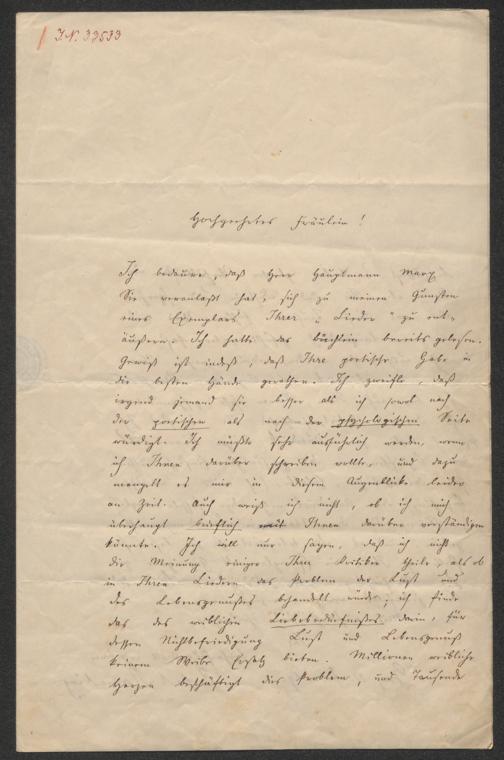 J.N. 33533
Hochgeehrtes Fräulein!
Ich bedaure, daß Herr Hauptmann Marx
Sie veranlaßt hat, sich zu meinen Gunsten
eines Exemplars Ihrer „Lieder" zu ent-
äußern. Ich hatte das Büchlein bereits gelesen.
Gewiß ist indeß, daß Ihre poetische Gabe in
die besten Hände gerathen. Ich zweifle, daß
irgend jemand sie besser als ich sowol nach
der poetischen als nach der psychologischen Seite
würdigt. Ich müßte sehr ausführlich werden, wenn
ich Ihnen darüber schreiben wollte, und dazu
mangelt es mir in diesem Augenblicke leider
an Zeit. Auch weiß ich nicht, ob ich mich
überhaupt brieflich mit Ihnen darüber verständigen
könnte. Ich will nur sagen, daß ich nicht
die Meinung einiger Ihrer Kritiker theile, als ob
in Ihren Liedern das Problem der Lust und
des Lebensgenußes behandelt würde; ich finde
das des weiblichen Liebebedürfnißes darin, für
dessen Nichtbefriedigung Lust und Lebensgenuß
keinem Weibe Ersatz bieten. Millionen weibliche
Herzen beschäftigt dies Problem, und Tausende